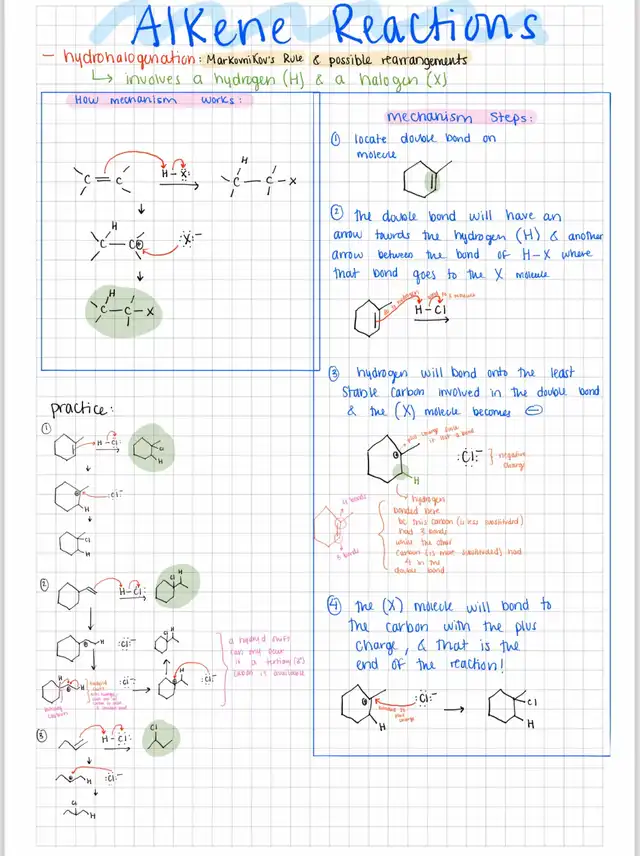 Alkene Reactions
- hydrohalogenation: Markovnikov's Rule & possible rearrangements
↳ involves a hydrogen (H) & a halogen (X)
How mechanism works:
C=C H-X: C-C-X
H
C-C⊕ :X:⁻
H
C-C-X
mechanism Steps:
① locate double bond on
molecule
② the double bond will have an
arrow towards the hydrogen (H) & another
arrow between the bond of H-X where
that bond goes to the X molecule
H-Cl
③ hydrogen will bond onto the least
stable carbon involved in the double bond
& the (X) molecule becomes ⊖
plus charge since
it lost a bond
:Cl:⁻ } negative
charge
H
hydrogen
bonded here
bc this carbon (is less substituted)
had 3 bonds
while the other
carbon (is more substituted) had
4 in the
double bond
4 bonds
3 bonds
④ the (X) molecule will bond to
the carbon with the plus
charge, & that is the
end of the reaction!
:Cl:⁻
bonded to
plus
charge
H
Cl
H
practice:
①
H-Cl:
Cl
H
:Cl:⁻
H
Cl
H
②
H-Cl:
Cl H
H :Cl:⁻
Cl H
H
:Cl:⁻
H
:Cl:⁻
a hydrid shift
can only occur
if a tertiary (3°)
carbon is available
③
H-Cl:
Cl
H :Cl:⁻
Cl
H